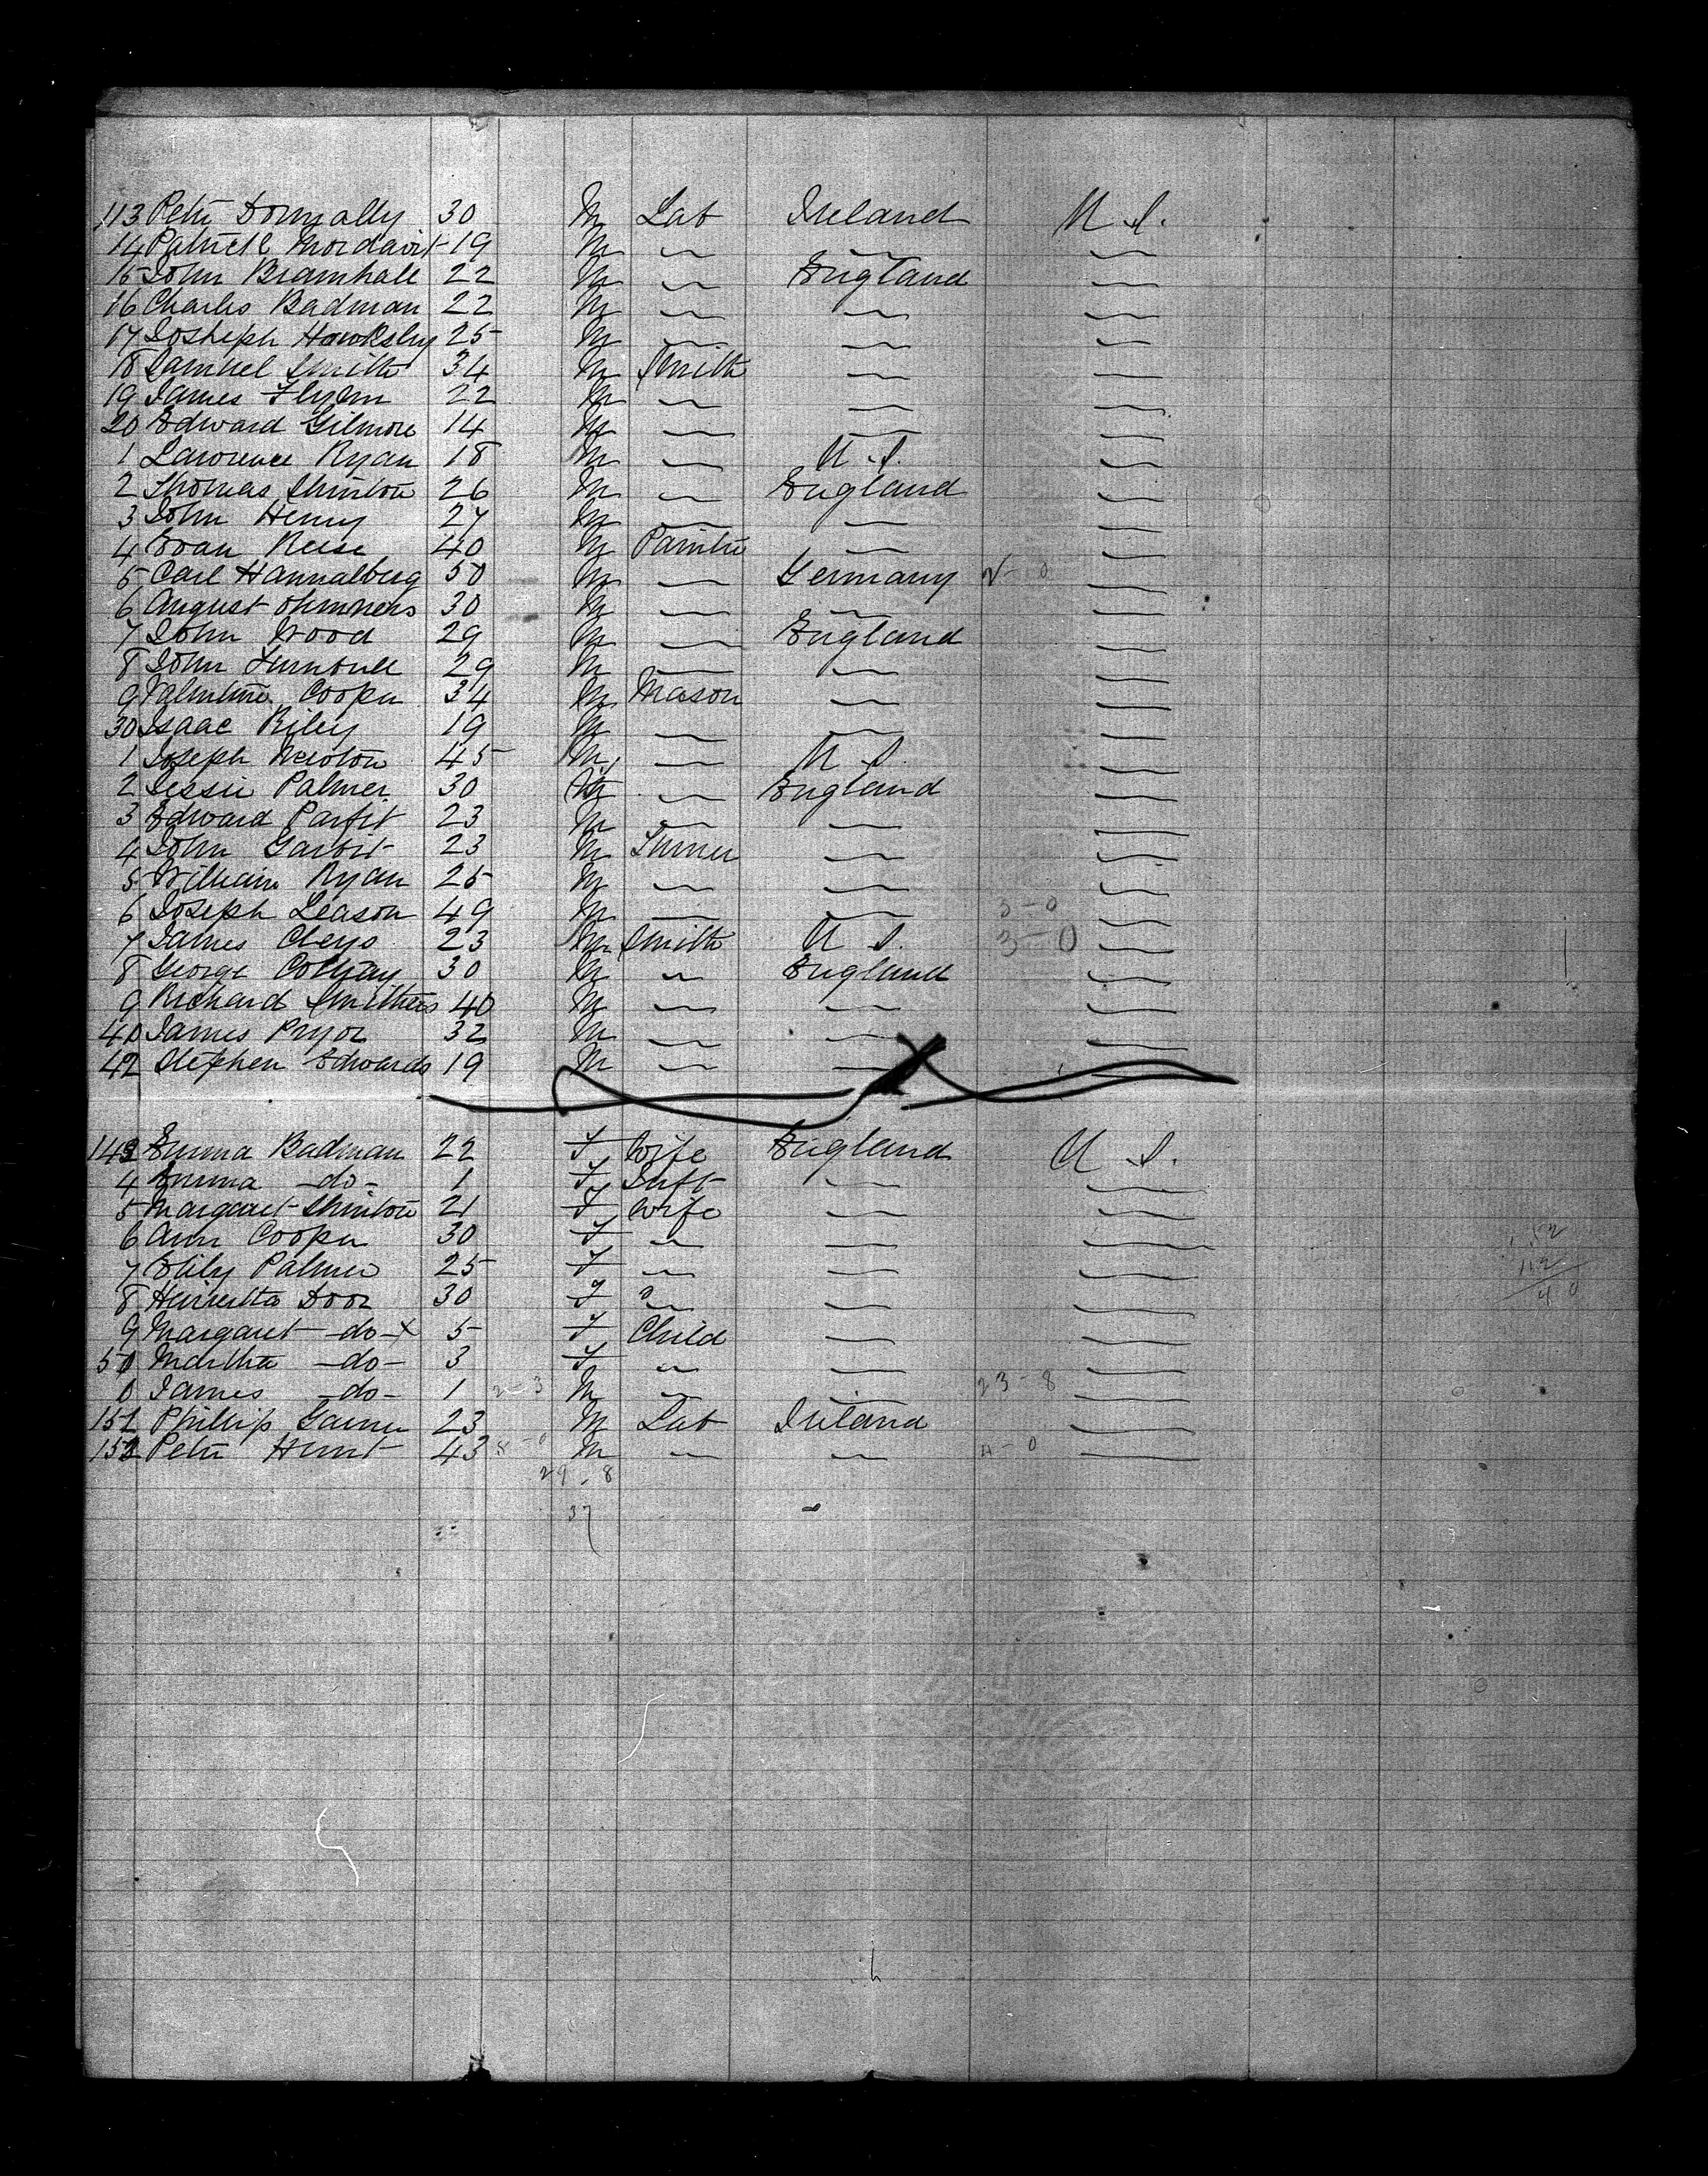 113 Peter Donnally 30 M Lab Ireland U.S.
14 Patrick Mordaint 19 M " " "
15 John Bramhall 22 M " England "
16 Charles Badman 22 M " " "
17 Josheph Hawksley 25 M " " "
18 Samuel Smith 34 M Smith " "
19 James Flynn 22 M " " "
20 Edward Gilmore 14 M " " "
1 Lawrence Ryan 18 M " U.S. "
2 Thomas Shinton 26 M " England "
3 John Henry 27 M " " "
4 Evan Reese 40 M Painter " "
5 Carl Hannalberg 50 M " Germany "
6 August 30 M " " "
7 John Wood 29 M " England "
8 John Turnbull 29 M " " "
9 Valentine Cooper 34 M Mason " "
30 Isaac Riley 19 M " " "
1 Joseph Newton 45 M " U.S. "
2 Jessie Palmer 30 M " England "
3 Edward Parfit 23 M " " "
4 John Garbit 23 M Turner " "
5 William Ryan 25 M " " "
6 Joseph Leason 49 M " " 3-0 "
7 James Cleys 23 M Smith U.S. 3-0 "
8 George 30 M " England "
9 Richard Smithers 40 M " " "
40 James Pryor 32 M " " "
42 Stephen Edwards 19 M " " "
143 Emma Badman 22 F Wife England U.S.
4 Emma -do- 1 F Inft " "
5 Margaret Shinton 21 F Wife " "
6 Ann Cooper 30 F " " "
7 Elily Palmer 25 F " " "
8 Henrietta Door 30 F " " "
9 Margaret -do- X 5 F Child " "
50 Martha -do- 3 F " " "
0 James -do- 1 2-3 M " " 23-8 "
151 Phillip Garner 23 M Lab Ireland "
152 Peter Hunt 43 8-0 M " " 4-0 "
29.8
37
152
112
40